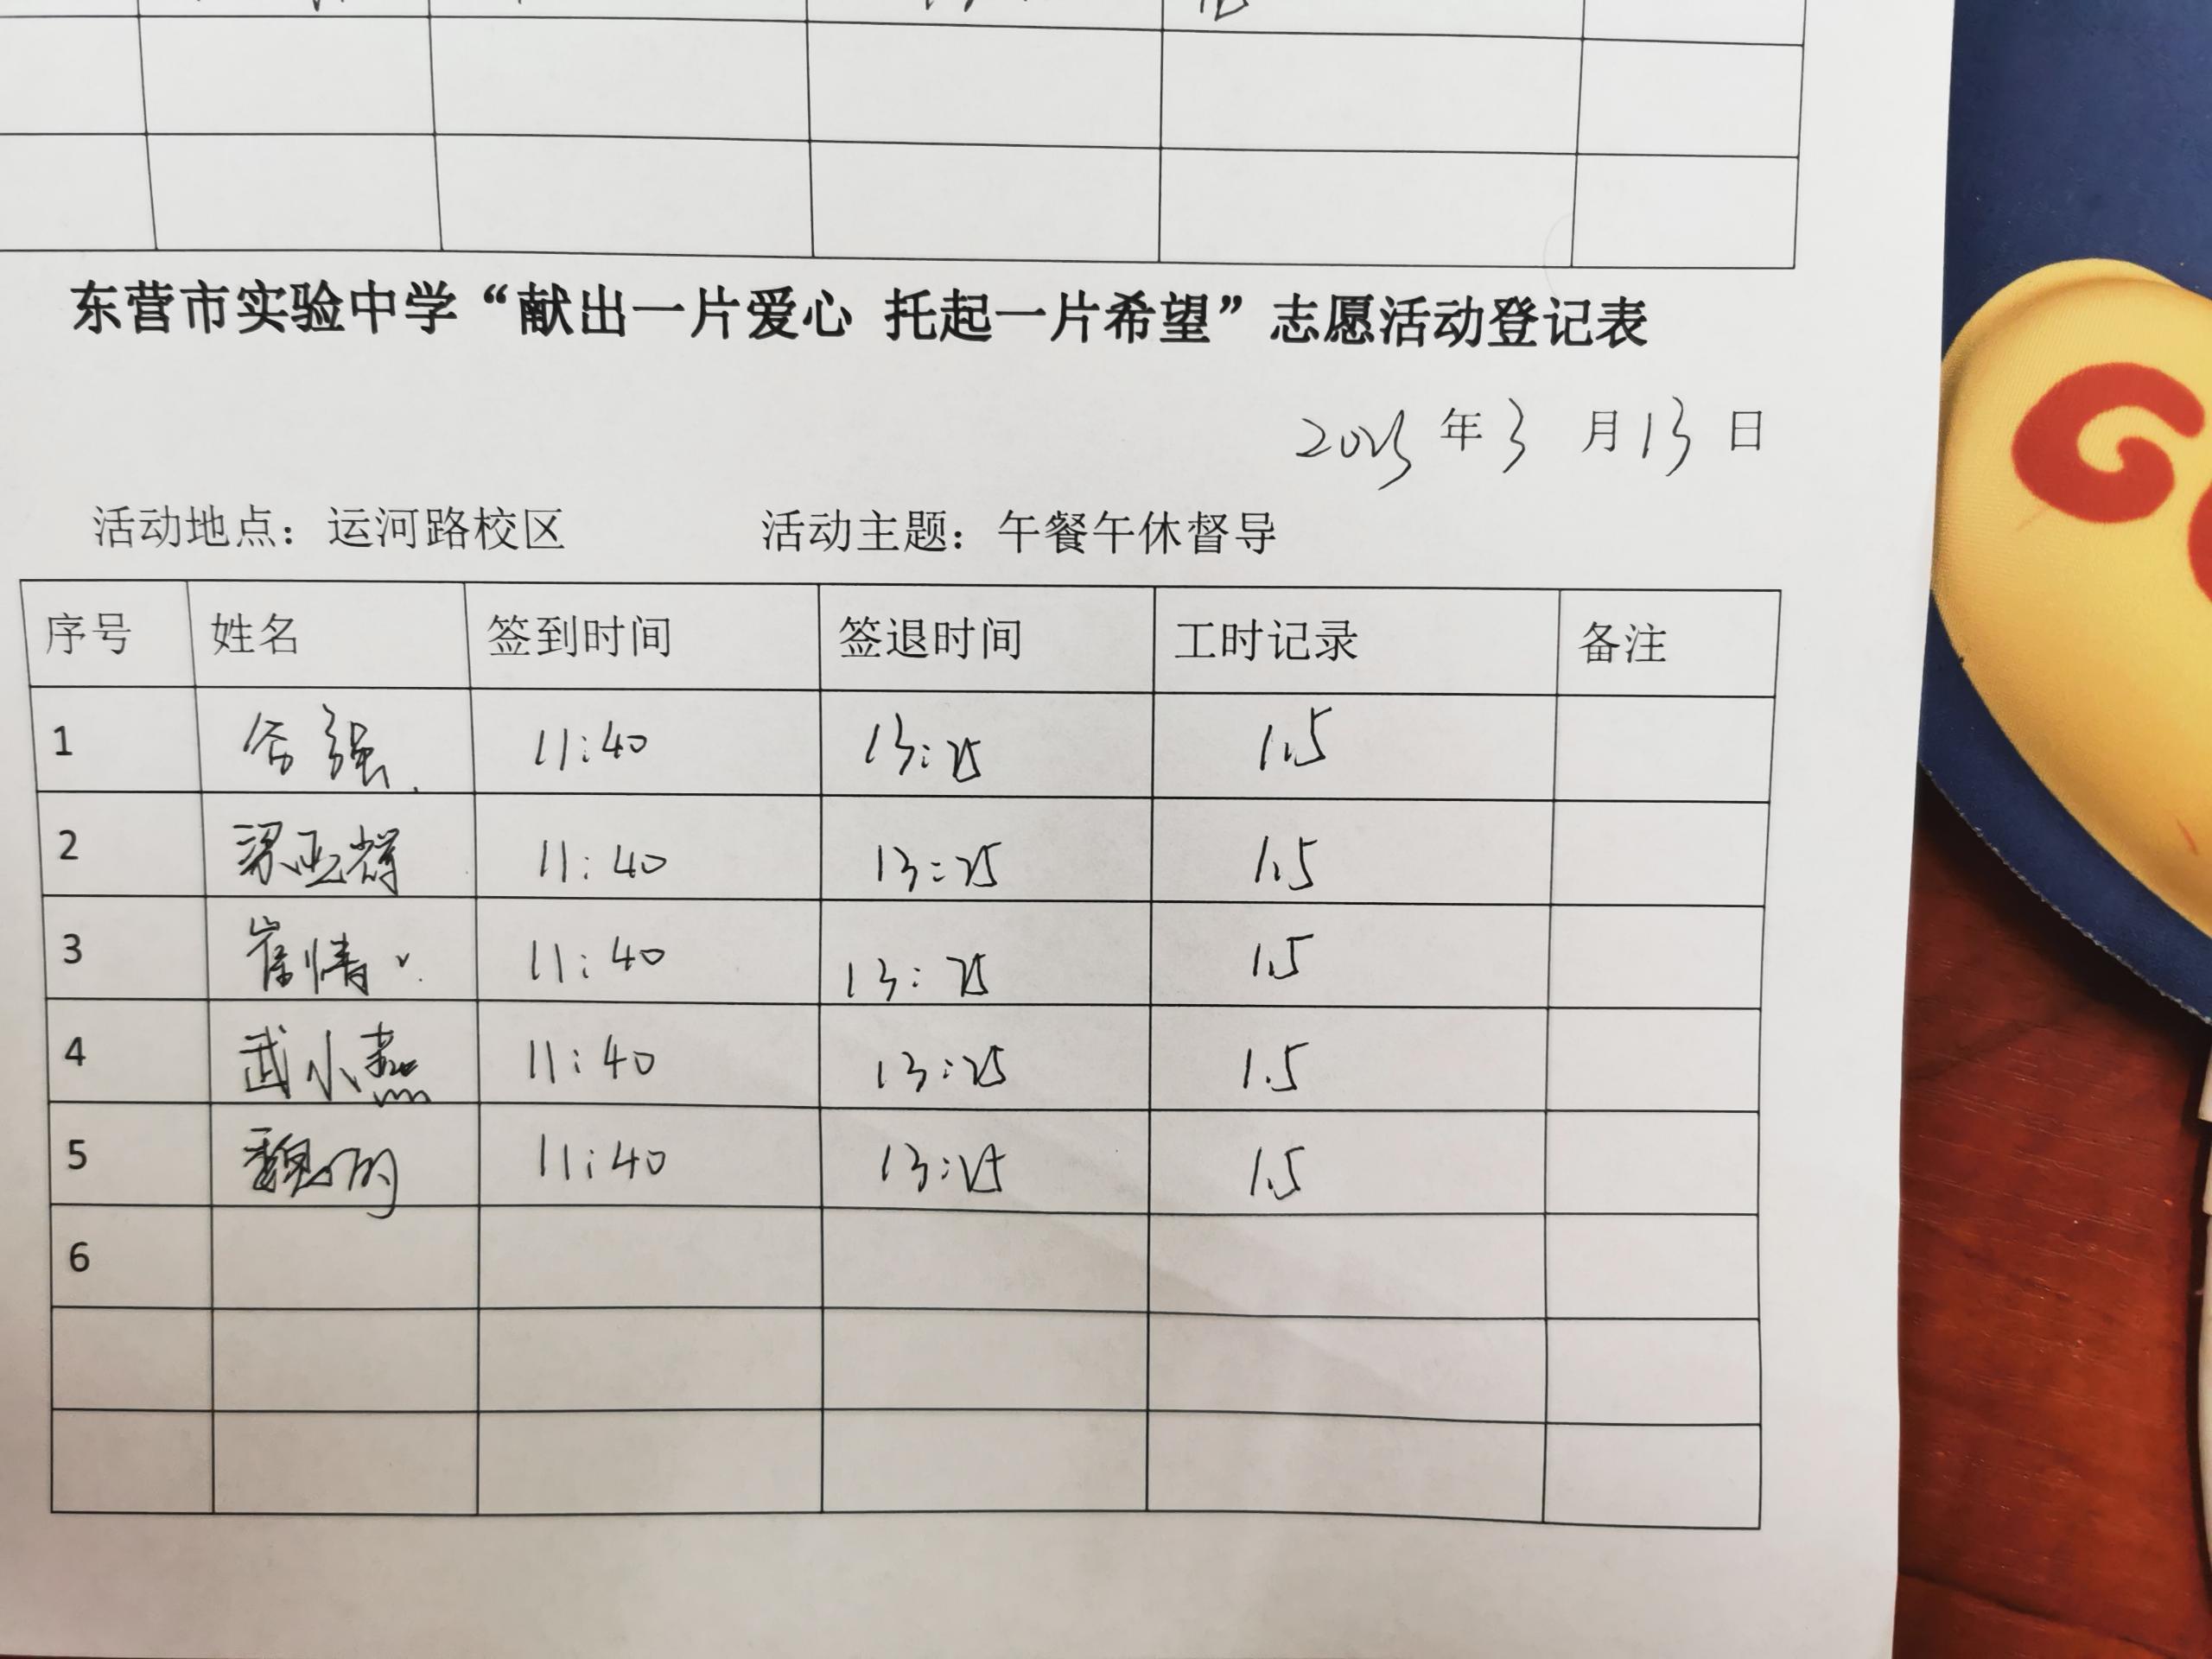 东营市实验中学“献出一片爱心 托起一片希望”志愿活动登记表
2023年3月13日
活动地点：运河路校区 活动主题：午餐午休督导
序号 姓名 签到时间 签退时间 工时记录 备注
1 强 11:40 13:25 1.5
2 梁亚辉 11:40 13:25 1.5
3 崔倩 11:40 13:25 1.5
4 武小燕 11:40 13:25 1.5
5 魏 11:40 13:25 1.5
6